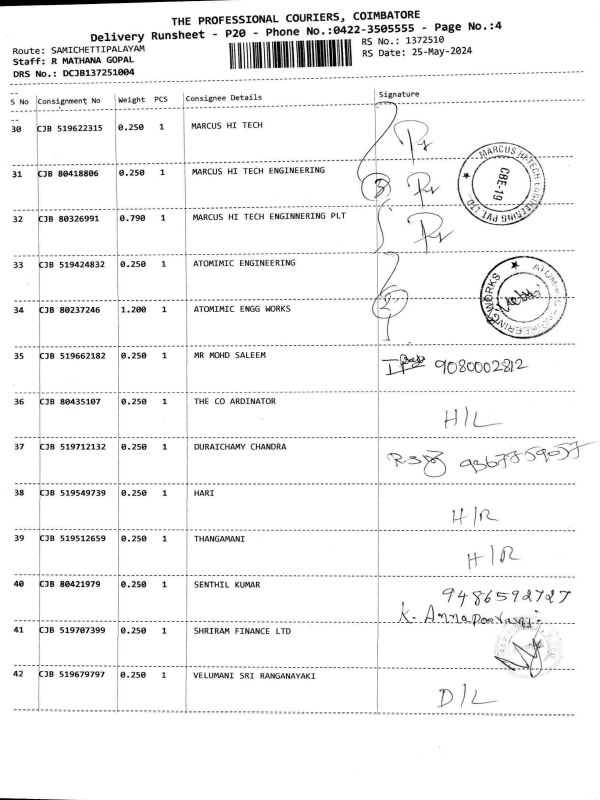 THE PROFESSIONAL COURIERS, COIMBATORE
Delivery Runsheet - P20 - Phone No.:0422-3505555 - Page No.:4
Route: SAMICHETTIPALAYAM
RS No.: 1372510
Staff: R MATHANA GOPAL
RS Date: 25-May-2024
DRS No.: DCJB137251004
S No Consignment No Weight PCS Consignee Details Signature
30 CJB 519622315 0.250 1 MARCUS HI TECH
31 CJB 80418806 0.250 1 MARCUS HI TECH ENGINEERING
3
MARCUS HI-TECH ENGINEERING PVT LTD
CBE-19
32 CJB 80326991 0.790 1 MARCUS HI TECH ENGINNERING PLT
33 CJB 519424832 0.250 1 ATOMIMIC ENGINEERING
34 CJB 80237246 1.200 1 ATOMIMIC ENGG WORKS
2
35 CJB 519662182 0.250 1 MR MOHD SALEEM
9080002812
36 CJB 80435107 0.250 1 THE CO ARDINATOR
H/L
37 CJB 519712132 0.250 1 DURAICHAMY CHANDRA
9367759057
38 CJB 519549739 0.250 1 HARI
H/R
39 CJB 519512659 0.250 1 THANGAMANI
H/R
40 CJB 80421979 0.250 1 SENTHIL KUMAR
9486592727
K. Annapoorani
41 CJB 519707399 0.250 1 SHRIRAM FINANCE LTD
42 CJB 519679797 0.250 1 VELUMANI SRI RANGANAYAKI
D/L